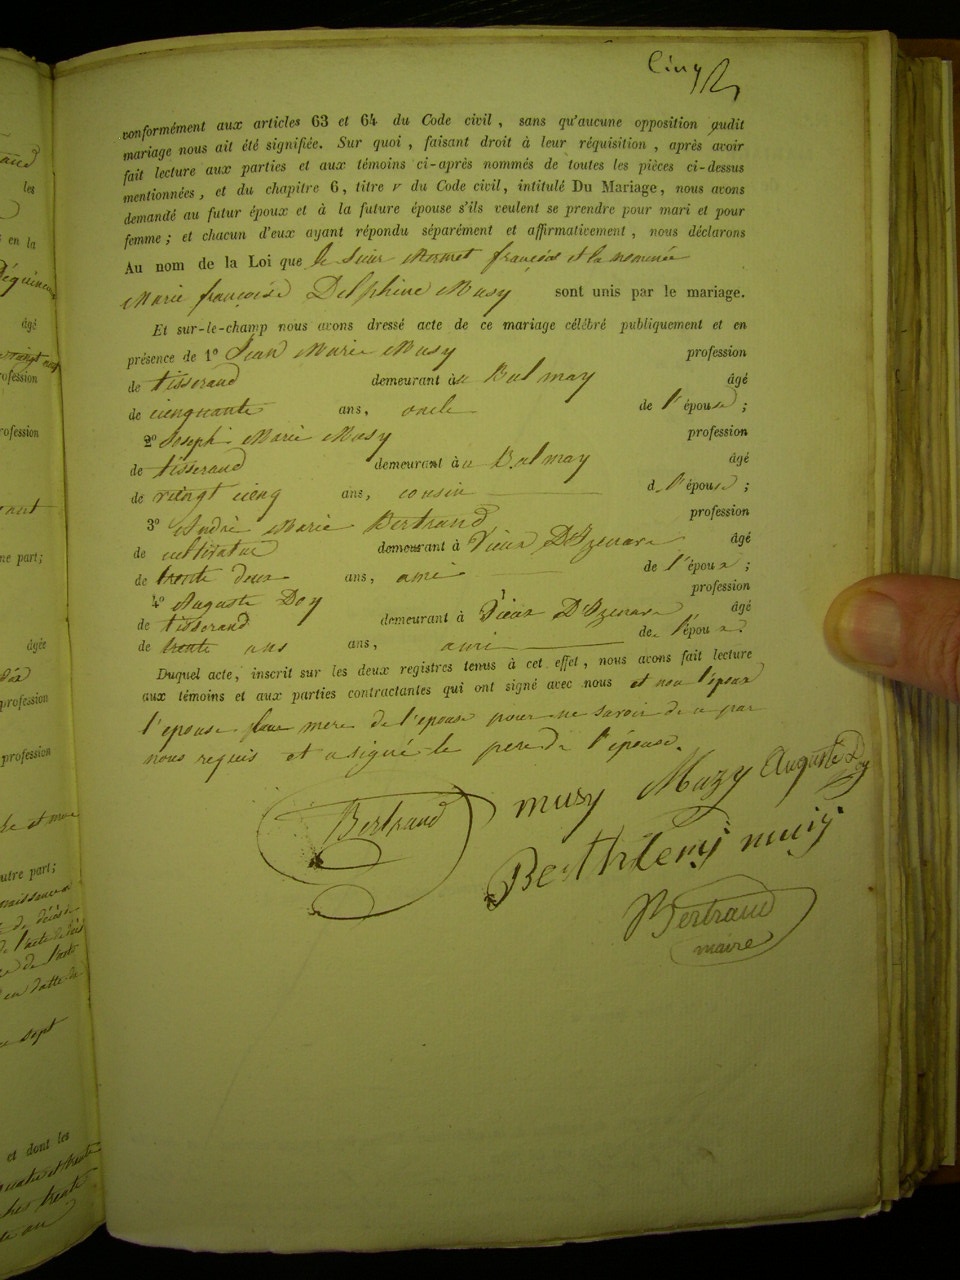 Cinq
conformément aux articles 63 et 64 du Code civil, sans qu'aucune opposition audit
mariage nous ait été signifiée. Sur quoi, faisant droit à leur réquisition, après avoir
fait lecture aux parties et aux témoins ci-après nommés de toutes les pièces ci-dessus
mentionnées, et du chapitre 6, titre v du Code civil, intitulé Du Mariage, nous avons
demandé au futur époux et à la future épouse s'ils veulent se prendre pour mari et pour
femme; et chacun d'eux ayant répondu séparément et affirmativement, nous déclarons
Au nom de la Loi que le Sieur françois et la nommée
Marie françoise Delphine Musy sont unis par le mariage.
Et sur-le-champ nous avons dressé acte de ce mariage célébré publiquement et en
présence de 1° Jean Marie Musy profession
de tisserand demeurant à a Balmay âgé
de cienquante ans, oncle de l'épouse;
2° Joseph Marie Musy profession
de tisserand demeurant à a Balmay âgé
de veingt cienq ans, cousin d l'épouse;
3° André Marie Bertrand profession
de cultivateur demeurant à Vieux D'Izenave âgé
de trente deux ans, ami de l'époux;
4° Auguste Doy profession
de tisserand demeurant à Vieux D'Izenave âgé
de trente ans ans, ami de l'époux.
Duquel acte, inscrit sur les deux registres tenus à cet effet, nous avons fait lecture
aux témoins et aux parties contractantes qui ont signé avec nous et non l'époux
l'épouse mere de l'epouse pour ne savoir de a par
nous requis et a signé le pere de l'épouse.
Bertrand musy Muzy Auguste Doy
Berthelemy musy
Bertrand
maire
les
en la
âgé
profession
profession
ne part;
âgée
profession
profession
autre part;
et dont les